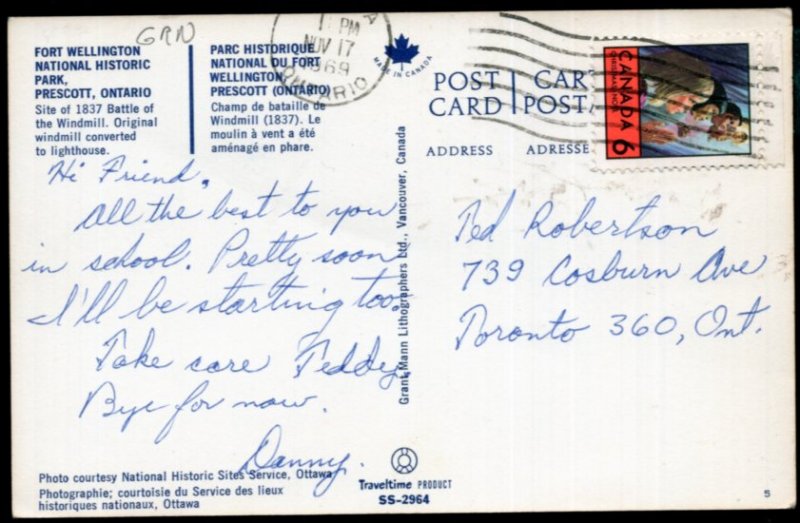 GRN
FORT WELLINGTON
NATIONAL HISTORIC
PARK,
PRESCOTT, ONTARIO
Site of 1837 Battle of
the Windmill. Original
windmill converted
to lighthouse.
PARC HISTORIQUE
NATIONAL DU FORT
WELLINGTON
PRESCOTT (ONTARIO)
Champ de bataille de
Windmill (1837). Le
moulin à vent a été
aménagé en phare.
PM
NOV 17
1969
ONTARIO
MADE IN CANADA
POST CARD
CARTE POSTALE
ADDRESS
ADRESSE
CANADA 6
Hi Friend,
All the best to you
in school. Pretty soon
I'll be starting too.
Take care Teddy
Bye for now.
Danny.
Ted Robertson
739 Cosburn Ave
Toronto 360, Ont.
Grant-Mann Lithographers Ltd., Vancouver, Canada
Photo courtesy National Historic Sites Service, Ottawa
Photographie; courtoisie du Service des lieux
historiques nationaux, Ottawa
Traveltime PRODUCT
SS-2964
5